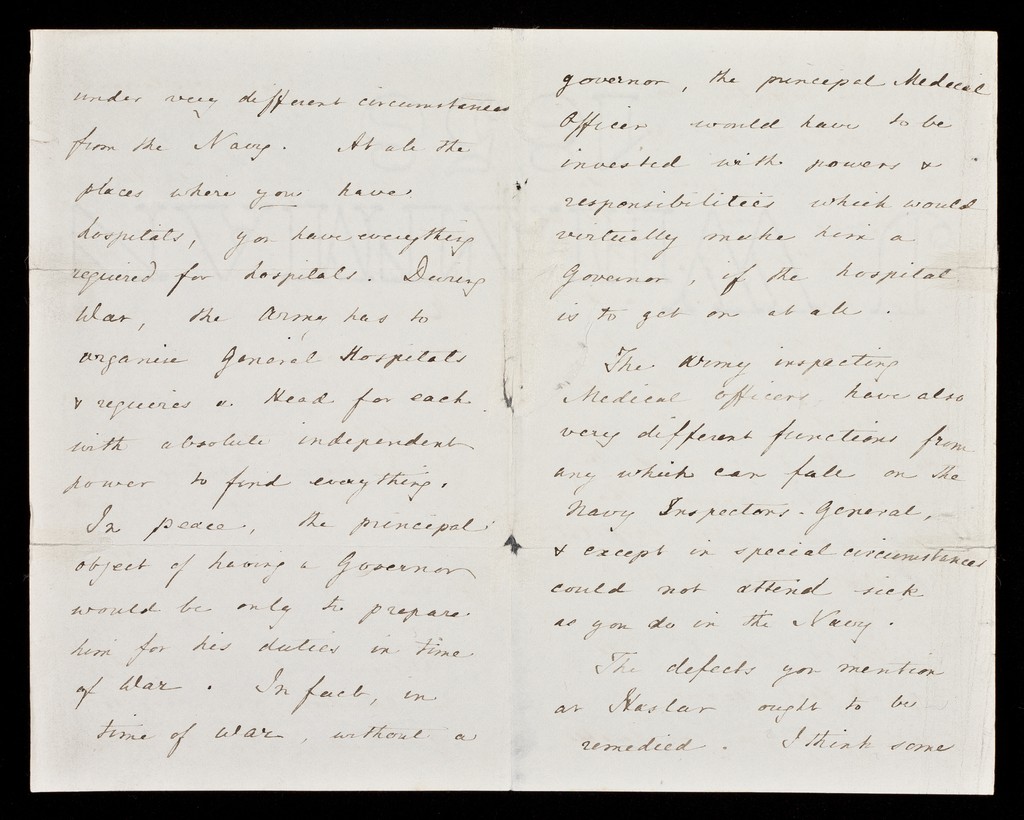 under very different circumstances
from the Navy. At all the
places where you have
hospitals, you have everything
required for hospitals. During
War, the Army has to
organise General Hospitals
& requires a Head for each
with absolute independent
power to find everything.
In peace, the principal
object of having a Governor
would be only to prepare
him for his duties in time
of War. In fact, in
time of war, without a
governor, the principal Medical
Officer would have to be
invested with powers &
responsibilities which would
virtually make him a
Governor, if the hospital
is to get on at all.
The Army inspecting
Medical officers have also
very different functions from
any which can fall on the
Navy Inspectors-General,
& except in special circumstances
could not attend sick
as you do in the Navy.
The defects you mention
at Haslar ought to be
remedied. I think some